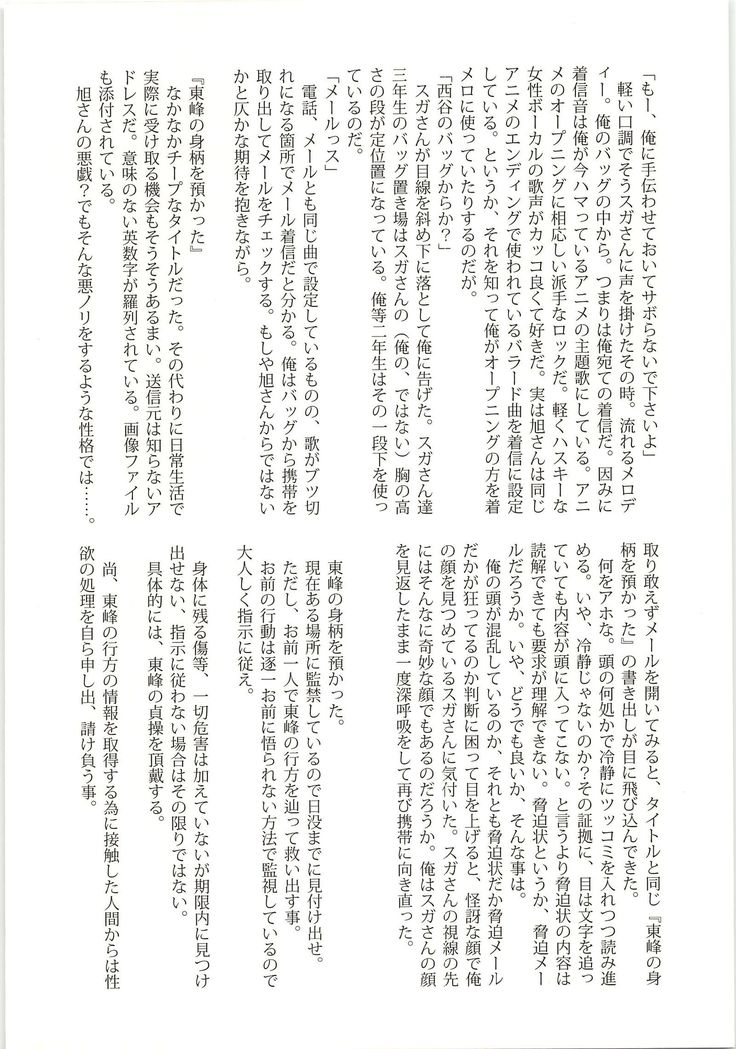 「もー、俺に手伝わせておいてサボらないで下さいよ」
　軽い口調でそうスガさんに声を掛けたその時。流れるメロデ
ィー。俺のバッグの中から。つまりは俺宛ての着信だ。因みに
着信音は俺が今ハマっているアニメの主題歌にしている。アニ
メのオープニングに相応しい派手なロックだ。軽くハスキーな
女性ボーカルの歌声がカッコ良くて好きだ。実は旭さんは同じ
アニメのエンディングで使われているバラード曲を着信に設定
している。というか、それを知って俺がオープニングの方を着
メロに使っていたりするのだが。
「西谷のバッグからか？」
　スガさんが目線を斜め下に落として俺に告げた。スガさん達
三年生のバッグ置き場はスガさんの（俺の、ではない）胸の高
さの段が定位置になっている。俺等二年生はその一段下を使っ
ているのだ。
「メールっス」
　電話、メールとも同じ曲で設定しているものの、歌がブツ切
れになる箇所でメール着信だと分かる。俺はバッグから携帯を
取り出してメールをチェックする。もしや旭さんからではない
かと仄かな期待を抱きながら。
『東峰の身柄を預かった』
　なかなかチープなタイトルだった。その代わりに日常生活で
実際に受け取る機会もそうそうあるまい。送信元は知らないア
ドレスだ。意味のない英数字が羅列されている。画像ファイル
も添付されている。
　旭さんの悪戯？でもそんな悪ノリをするような性格では……。
取り敢えずメールを開いてみると、タイトルと同じ『東峰の身
柄を預かった』の書き出しが目に飛び込んできた。
　何をアホな。頭の何処かで冷静にツッコミを入れつつ読み進
める。いや、冷静じゃないのか？その証拠に、目は文字を追っ
ていても内容が頭に入ってこない。と言うより脅迫状の内容は
読解できても要求が理解できない。脅迫状というか、脅迫メー
ルだろうか。いや、どうでも良いか、そんな事は。
　俺の頭が混乱しているのか、それとも脅迫状だか脅迫メール
だかが狂ってるのか判断に困って目を上げると、怪訝な顔で俺
の顔を見つめているスガさんに気付いた。スガさんの視線の先
にはそんなに奇妙な顔でもあるのだろうか。俺はスガさんの顔
を見返したまま一度深呼吸をして再び携帯に向き直った。
東峰の身柄を預かった。
現在ある場所に監禁しているので日没までに見付け出せ。
ただし、お前一人で東峰の行方を辿って救い出す事。
お前の行動は逐一お前に悟られない方法で監視しているので
大人しく指示に従え。
身体に残る傷等、一切危害は加えていないが期限内に見つけ
出せない、指示に従わない場合はその限りではない。
具体的には、東峰の貞操を頂戴する。
尚、東峰の行方の情報を取得する為に接触した人間からは性
欲の処理を自ら申し出、請け負う事。